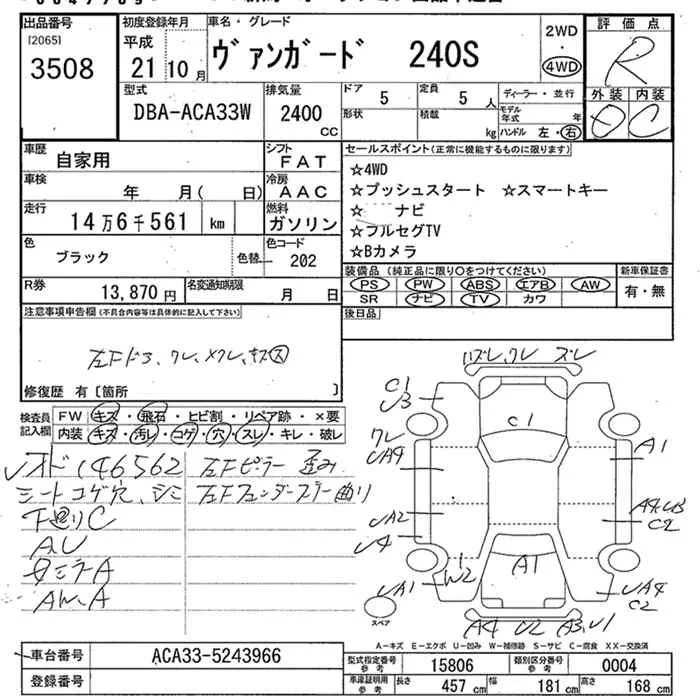 出品番号
[2065]
3508
初度登録年月
平成
21年10月
車名・グレード
ヴァンガード 240S
2WD
・
4WD
評価点
R
外装 内装
D C
型式
DBA-ACA33W
排気量
2400
CC
ドア 5
定員 5 人
形状
積載 kg
ディーラー・並行
モデル年式 年
ハンドル 左・右
車歴
自家用
シフト
FAT
車検
年 月( 日)
冷房
AAC
走行
14万6千561 km
燃料
ガソリン
色
ブラック
色替
色コード
202
R券
13,870円
名変通知期限
月 日
セールスポイント(正常に機能するものに限ります)
☆4WD
☆プッシュスタート ☆スマートキー
☆ ナビ
☆フルセグTV
☆Bカメラ
装備品(純正品に限り○をつけてください)
PS PW ABS エアB AW
SR ナビ TV カワ
新車保証書
有・無
後日品
注意事項申告欄(不具合内容等は具体的に記入して下さい)
修復歴 有〔箇所 〕
検査員記入欄
FW キズ・飛石・ヒビ割・リペア跡・×要
内装 キズ・汚レ・コゲ・穴・スレ・キレ・破レ
オド146562
左Fピラー歪み
シートコゲ穴、シミ
左Fフェンダーステー曲り
下廻りC
ハズレ、ワレ ズレ
C1
U3
C1
ワレ
UA4
A1
UA2
U4
C2
UA1
W2
A1
UA4
C2
A4 U2 A3、U1
スペア
A−キズ E−エクボ U−凹み W−補修跡 S−サビ C−腐食 XX−交換済
車台番号
ACA33-5243966
登録番号
型式指定番号
参考
15806
類別区分番号
参考
0004
車庫証明用
参考
長さ 457 cm
幅 181 cm
高さ 168 cm